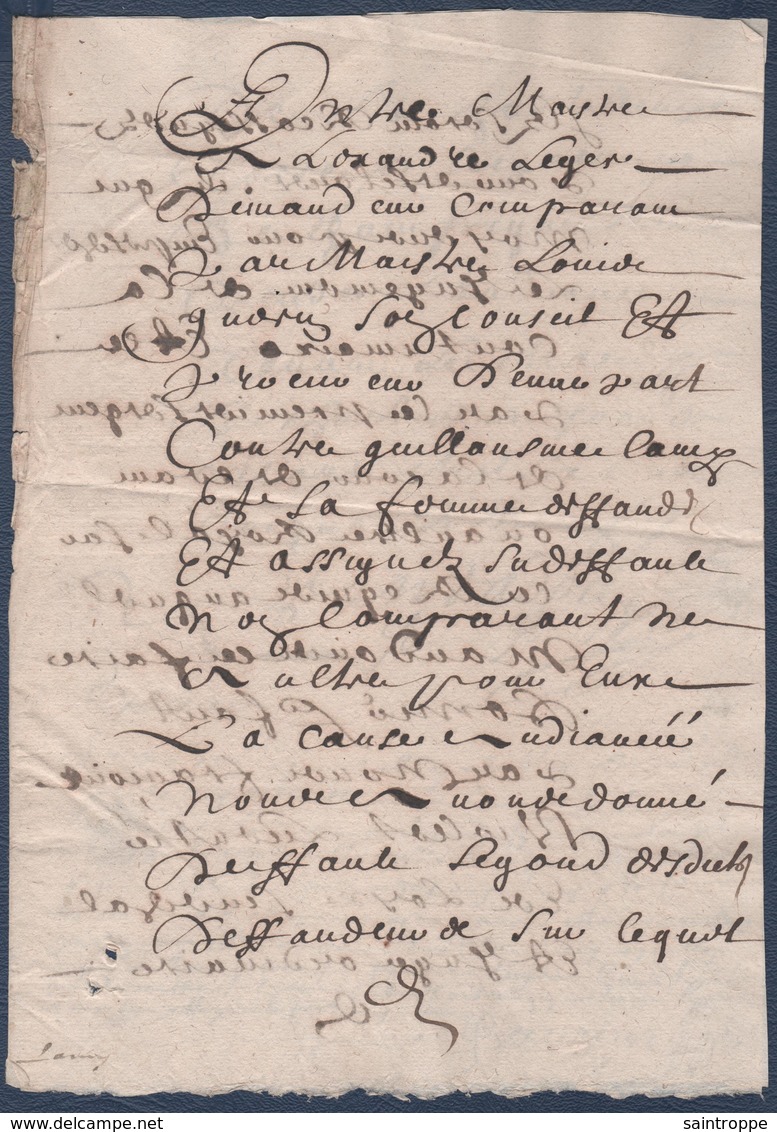 Entre Maistre
Alexandre Leger
Demandeur Comparant
Par Maistre Louis
guerin son Conseil Et
Procureur d'enne part
Contre guillausme Camy
Et Sa femme deffand
Et assignez Sudeffault
Non Comparant ne
Aultre pour Eux
La cause Audiancée
Nous Avons donné
Deffault Segond desdicts
Deffandeurs Sur lequel
Camy
www.delcampe.net
saintroppe